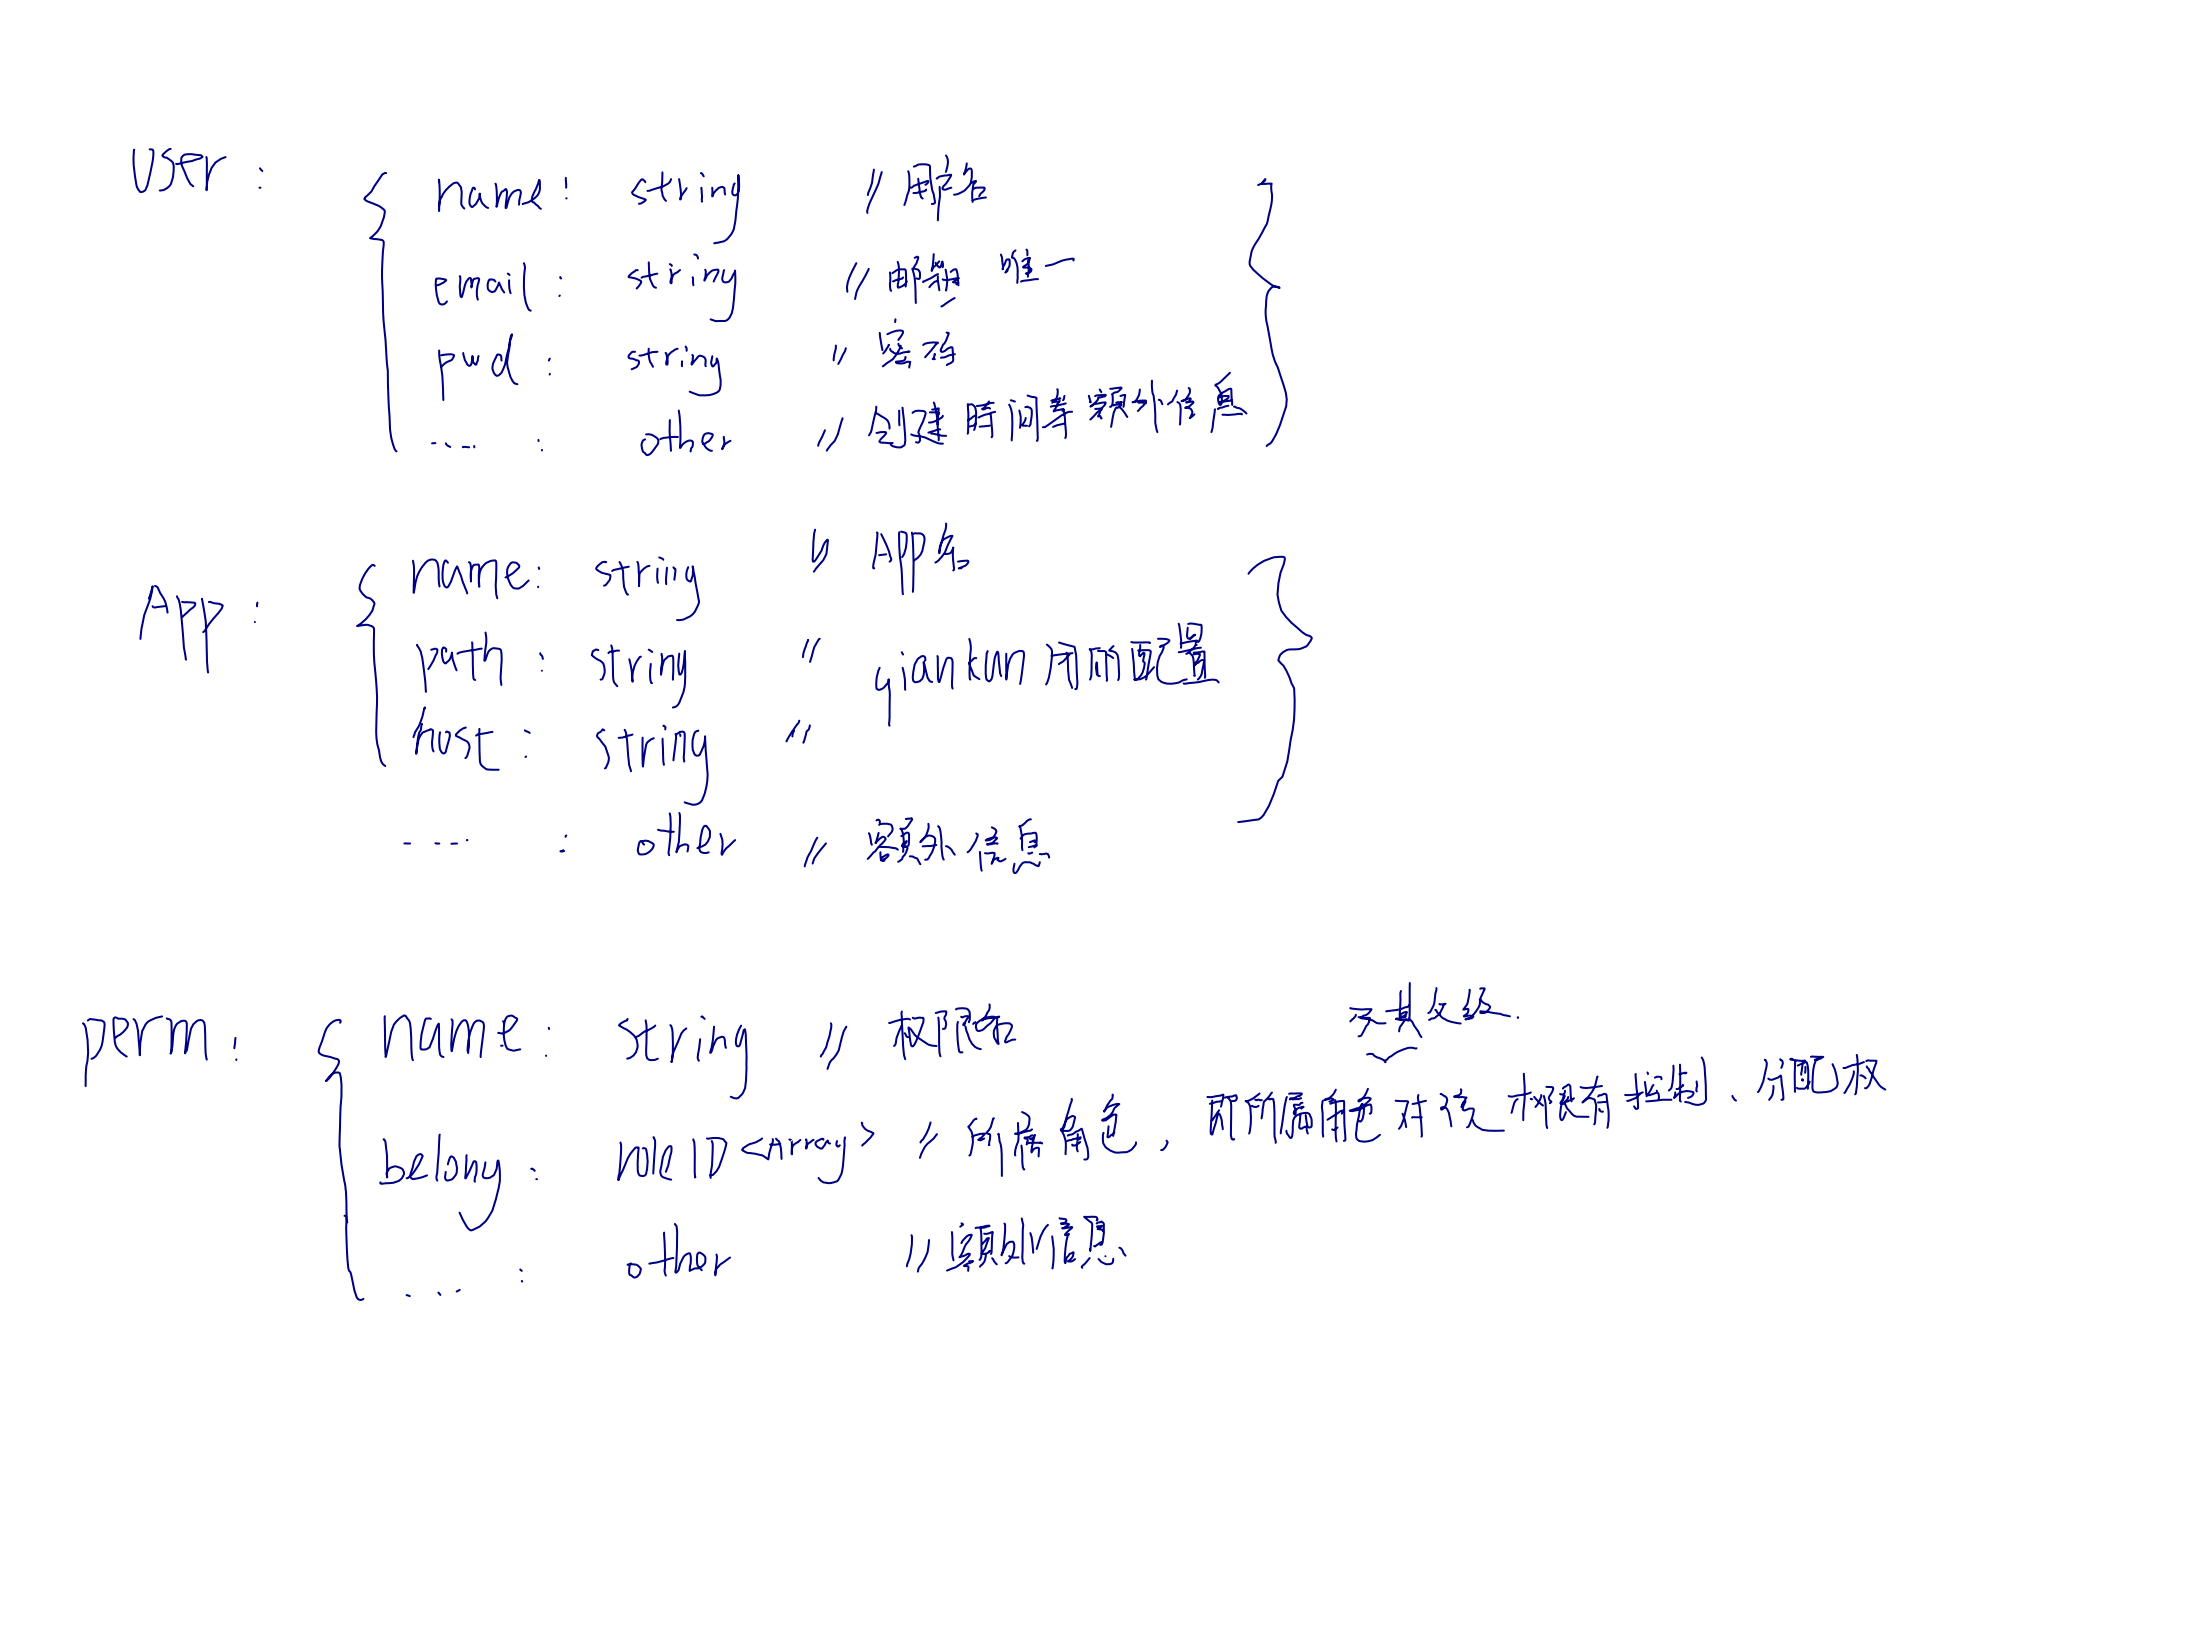 User : { name : string // 用户名
email : string // 邮箱 唯一
pwd : string // 密码
.... : other // 创建时间等额外信息 }
App : { name : string // App名
path : string // qiankun 所需配置
host : string // }
.... : other // 额外信息
perm : { name : string // 权限名
及其父级.
belong : roleID <Array> // 所属角色, 即所属角色对该权限有控制、分配权
... : other // 额外信息